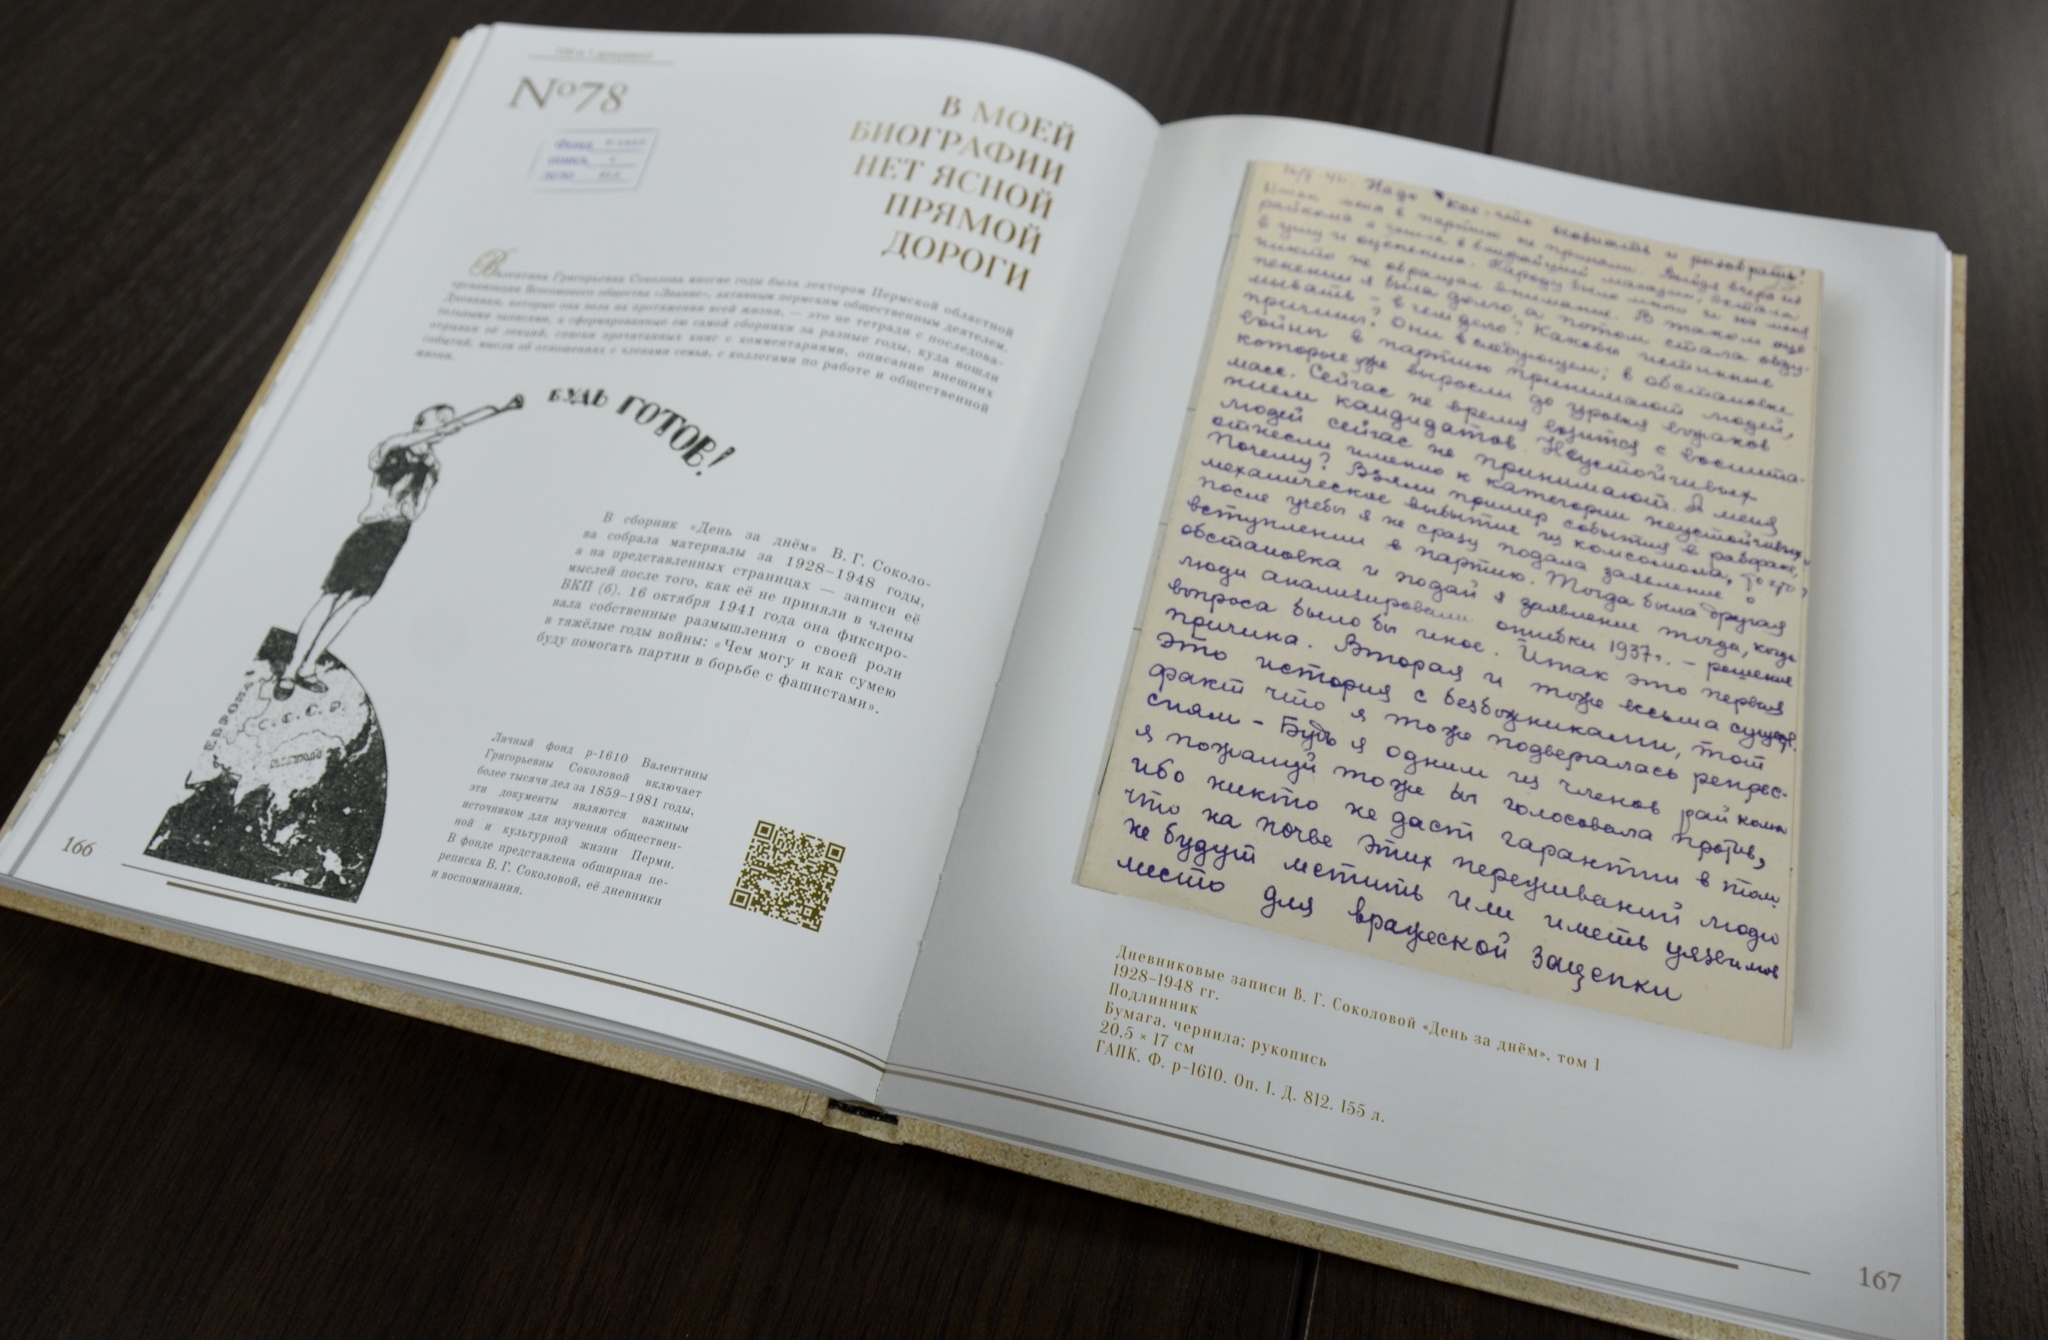 №78
В МОЕЙ
БИОГРАФИИ
НЕТ ЯСНОЙ
ПРЯМОЙ
ДОРОГИ
Валентина Григорьевна Соколова многие годы была лектором Пермской областной
организации Всесоюзного общества «Знание», активным пермским общественным деятелем.
Дневники, которые она вела на протяжении всей жизни, — это не тетради с последова-
тельными записями, а сформированные ею самой сборники за разные годы, куда вошли
отрывки из лекций, списки прочитанных книг с комментариями, описание внешних
событий, мысли об отношениях с членами семьи, с коллегами по работе и общественной
жизни.
БУДЬ ГОТОВ!
ЕВРОПА
С.С.С.Р.
В сборник «День за днём» В. Г. Соколо-
ва собрала материалы за 1928–1948 годы,
а на представленных страницах — записи её
мыслей после того, как её не приняли в члены
ВКП (б). 16 октября 1941 года она фиксиро-
вала собственные размышления о своей роли
в тяжёлые годы войны: «Чем могу и как сумею
буду помогать партии в борьбе с фашистами».
Личный фонд р-1610 Валентины
Григорьевны Соколовой включает
более тысячи дел за 1859–1981 годы,
эти документы являются важным
источником для изучения обществен-
ной и культурной жизни Перми.
В фонде представлена обширная пе-
реписка В. Г. Соколовой, её дневники
и воспоминания.
166
Надо кое-что осознать и разобрать!
Итак меня в партию не приняли. Выйдя вчера из
райкома я зашла в ближайший магазин, встала
в углу и оцепенела. Народу было мало и на меня
никто не обращал внимания. В таком оце
пенении я была долго, а потом стала обду-
мывать – в чем дело? Каковы истинные
причины? Они в следующем; в обстановке
войны в партию принимают людей,
которые уже выросли до уровня вожаков
масс. Сейчас не время возится с воспита-
нием кандидатов. Неустойчивых
людей сейчас не принимают. А меня
отнесли именно к категории неустойчивых
Почему? Взяли пример события в
механическое выбытие из комсомола, то что
после учебы я не сразу подала заявление о
вступлении в партию. Тогда была другая
обстановка и подай я заявление тогда, когда
люди анализировали ошибки 1937г. – решение
вопроса было бы иное. Итак это первая
причина. Вторая и тоже весьма сущест.
это история с безбожниками, тот
факт что я тоже подвергалась репрес-
сиям – Будь я одним из членов райкома
я пожалуй тоже бы голосовала против,
ибо никто не даст гарантии в том,
что на почве этих переживаний люди
не будут мстить или иметь уязвимое
место для вражеской зацепки
Дневниковые записи В. Г. Соколовой «День за днём», том 1
1928–1948 гг.
Подлинник
Бумага, чернила; рукопись
20,5 × 17 см
ГАПК. Ф. р-1610. Оп. 1. Д. 812. 155 л.
167